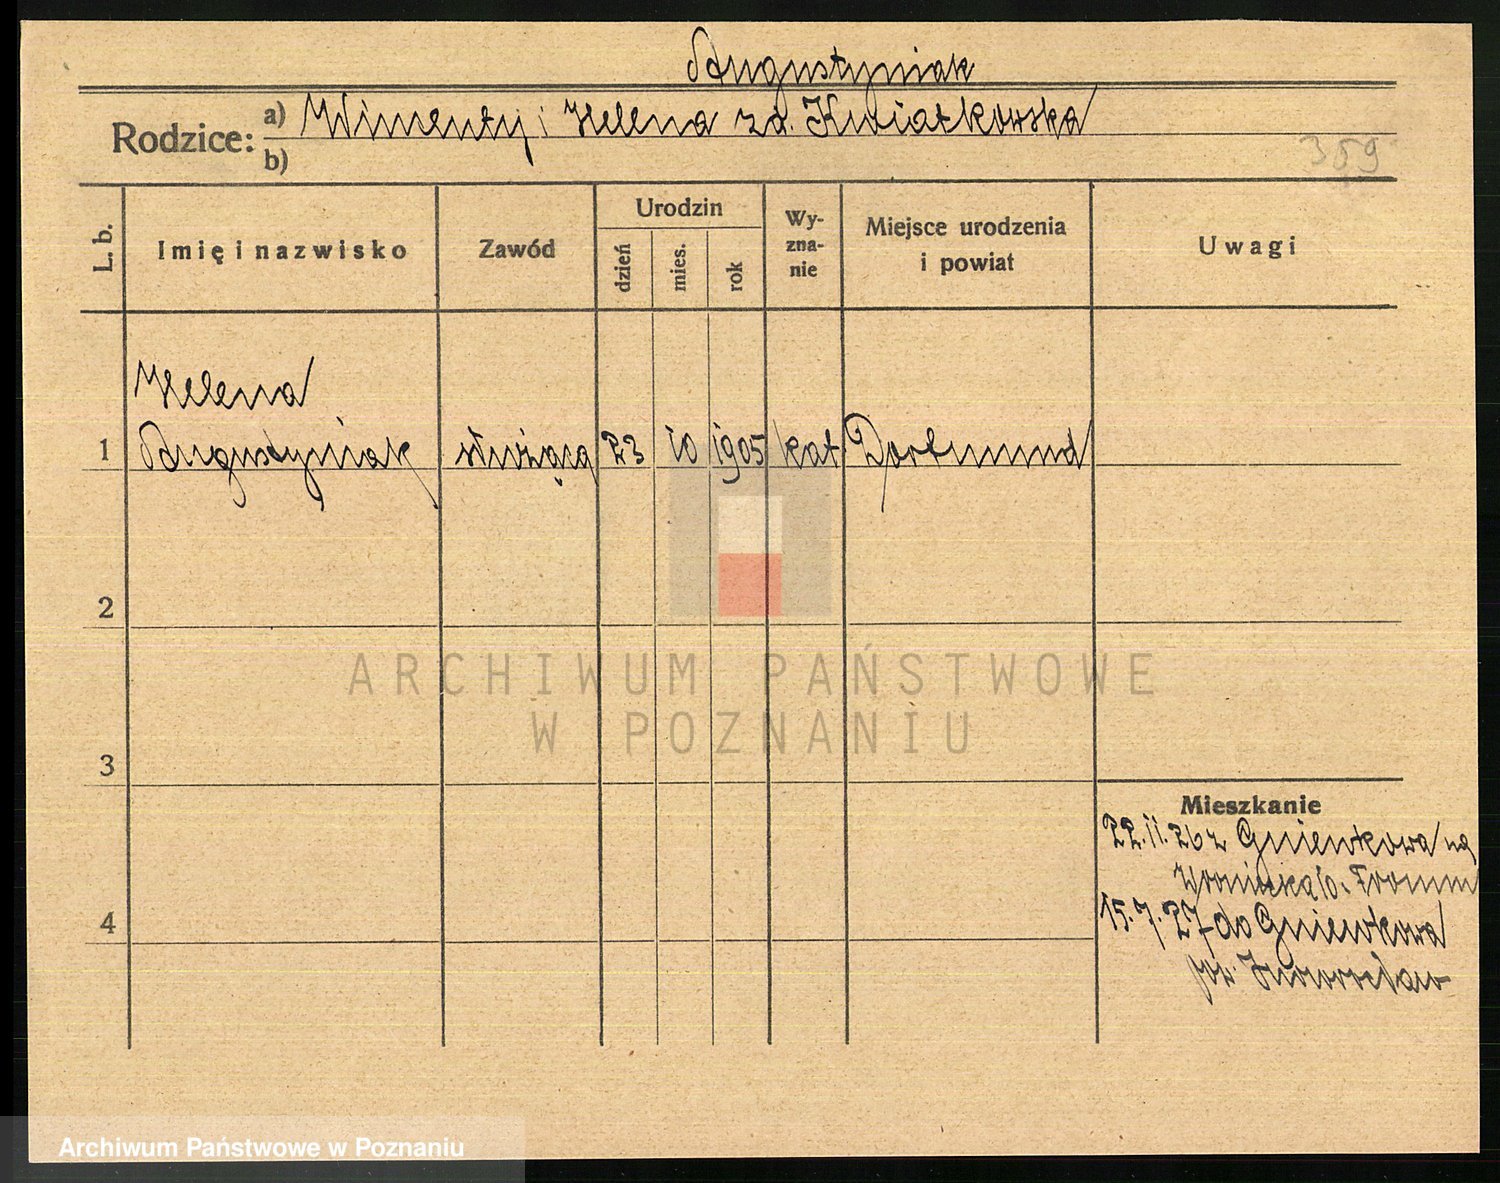 Augustyniak
Rodzice: a) Wincenty i Helena zd. Kwiatkowska
b)
359
L. b.
Imię i nazwisko
Zawód
Urodzin
dzień
mies.
rok
Wy-
zna-
nie
Miejsce urodzenia
i powiat
Uwagi
Helena
1 Augustyniak służąca 23 10 1905 kat Dortmund
2
ARCHIWUM PAŃSTWOWE
W POZNANIU
3
Mieszkanie
22.11.26 z Gniewkowa na
10. Fromm
4
15.7.27 do Gniewkowa
pow. Inowrocław
Archiwum Państwowe w Poznaniu